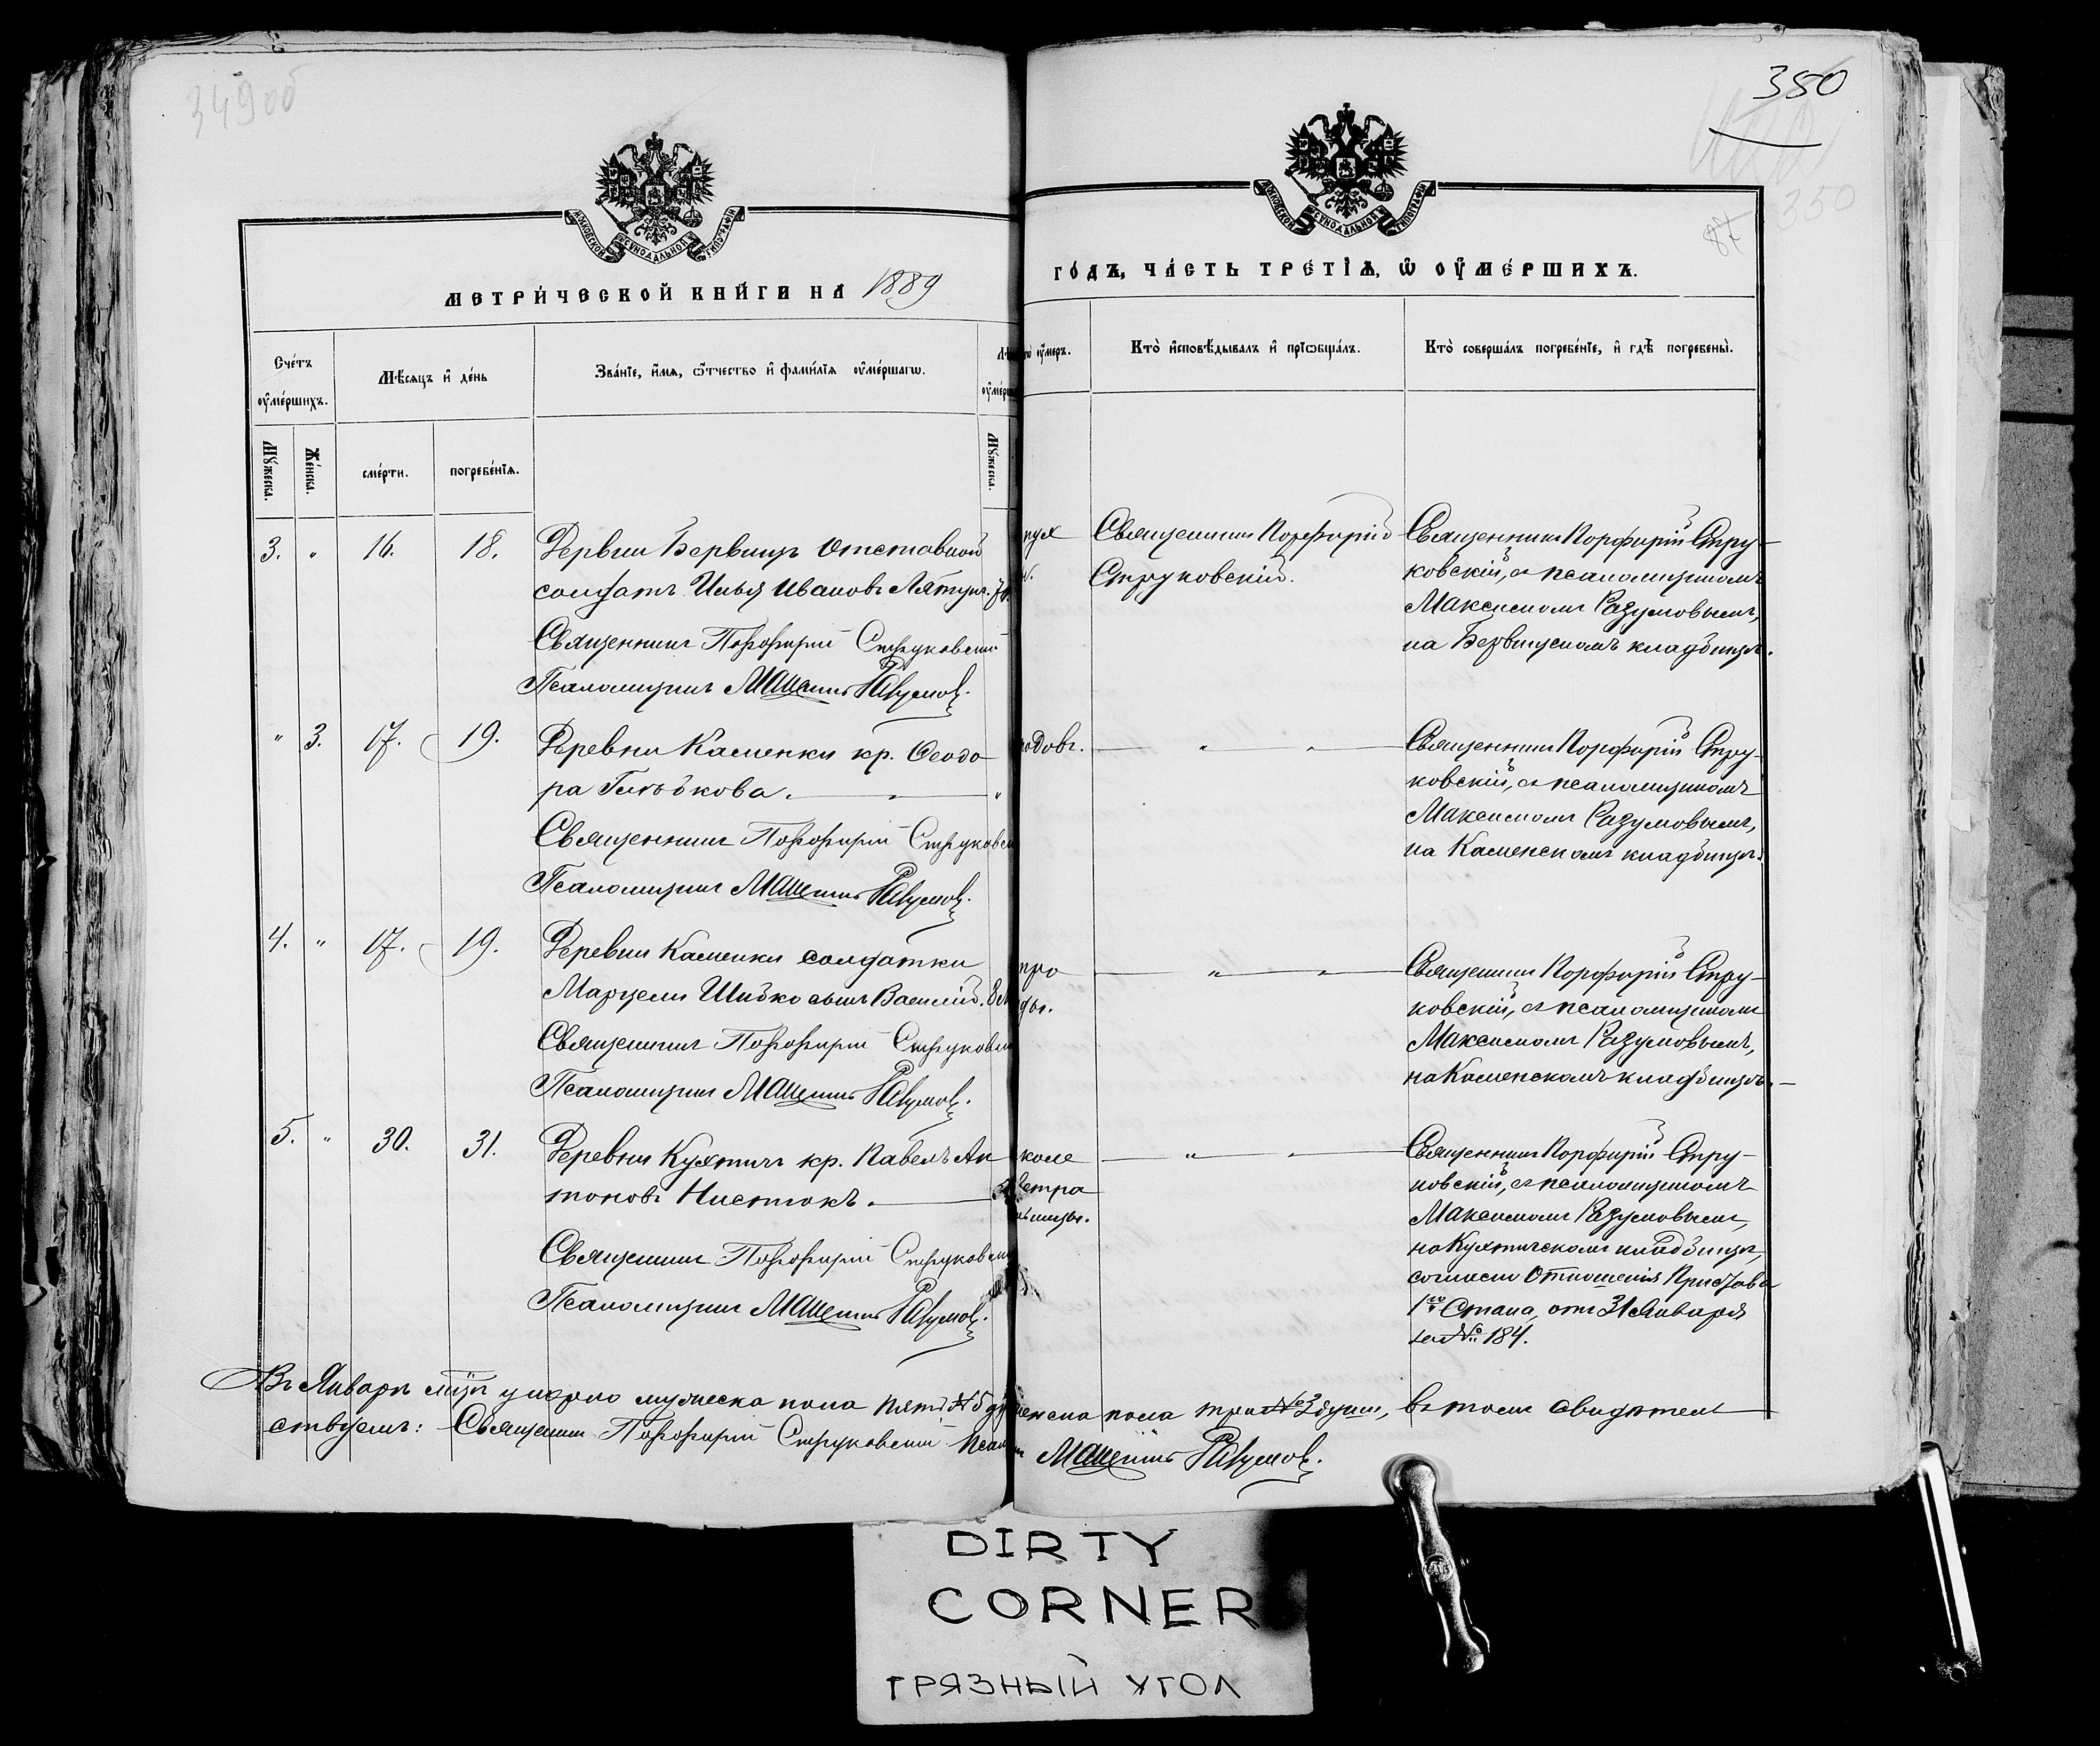 349об
350
350
87
МОСКОВСКОЙ СѴНОДАЛЬНОЙ ТИПОГРАФІИ
МОСКОВСКОЙ СѴНОДАЛЬНОЙ ТИПОГРАФІИ
МЕТРИ́ЧЕСКОЙ КНИ́ГИ НА 1889
ГО́ДЪ, ЧА́СТЬ ТРЕ́ТІѦ, Ѿ ОУ҆МЕ́РШИХЪ.
Сче́тъ оу҆ме́ршихъ.
Мѣ́сяцъ и҆ де́нь
Зва́ніе, и҆́мѧ, ѻ҆́тчество и҆ фами́лїѧ оу҆ме́ршагѡ.
оу҆́меръ.
Кто̀ и҆сповѣ́дывалъ и҆ прїѡбща́лъ.
Кто̀ соверша́лъ погребе́нїе, и҆ гдѣ̀ погребены̀.
Мꙋ́жеска.
Же́нска.
сме́рти.
погребе́нїѧ.
Мꙋ́жеска.
3. " 16. 18. Деревни Бервищъ Отставной
солдатъ Илья Ивановъ
Священникъ Порфирій Струковскій
Псаломщикъ Максимъ Разумовъ.
Священникъ Порфирій
Струковскій.
Священникъ Порфирій Стру-
ковскій, съ псаломщикомъ
Максимомъ Разумовымъ,
на кладбищѣ.
" 3. 17. 19. Деревни Каменки кр. Ѳеодо-
ра
Священникъ Порфирій Струковскій
Псаломщикъ Максимъ Разумовъ.
родовъ. " "
Священникъ Порфирій Стру-
ковскій, съ псаломщикомъ
Максимомъ Разумовымъ,
на Каменскомъ кладбищѣ.
4. " 17. 19. Деревни Каменки солдатки
Марцели Шибко сынъ Василій. 8
Священникъ Порфирій Струковскій
Псаломщикъ Максимъ Разумовъ.
" "
Священникъ Порфирій Стру-
ковскій, съ псаломщикомъ
Максимомъ Разумовымъ,
на Каменскомъ кладбищѣ.
5. " 30. 31. Деревни Кухтичъ кр. Павелъ Ан
тоновъ
Священникъ Порфирій Струковскій
Псаломщикъ Максимъ Разумовъ.
" "
Священникъ Порфирій Стру-
ковскій, съ псаломщикомъ
Максимомъ Разумовымъ,
на Кухтичскомъ кладбищѣ,
согласно Отношенія Пристава
1го Стана, отъ 31 Января
за № 184.
Въ Январѣ мцѣ умерло мужеска пола пять № 5 женска пола три № 3 души, въ томъ свидѣтель
ствуемъ: Священникъ Порфирій Струковскій Максимъ Разумовъ.
DIRTY
CORNER
ГРЯЗНЫЙ УГОЛ